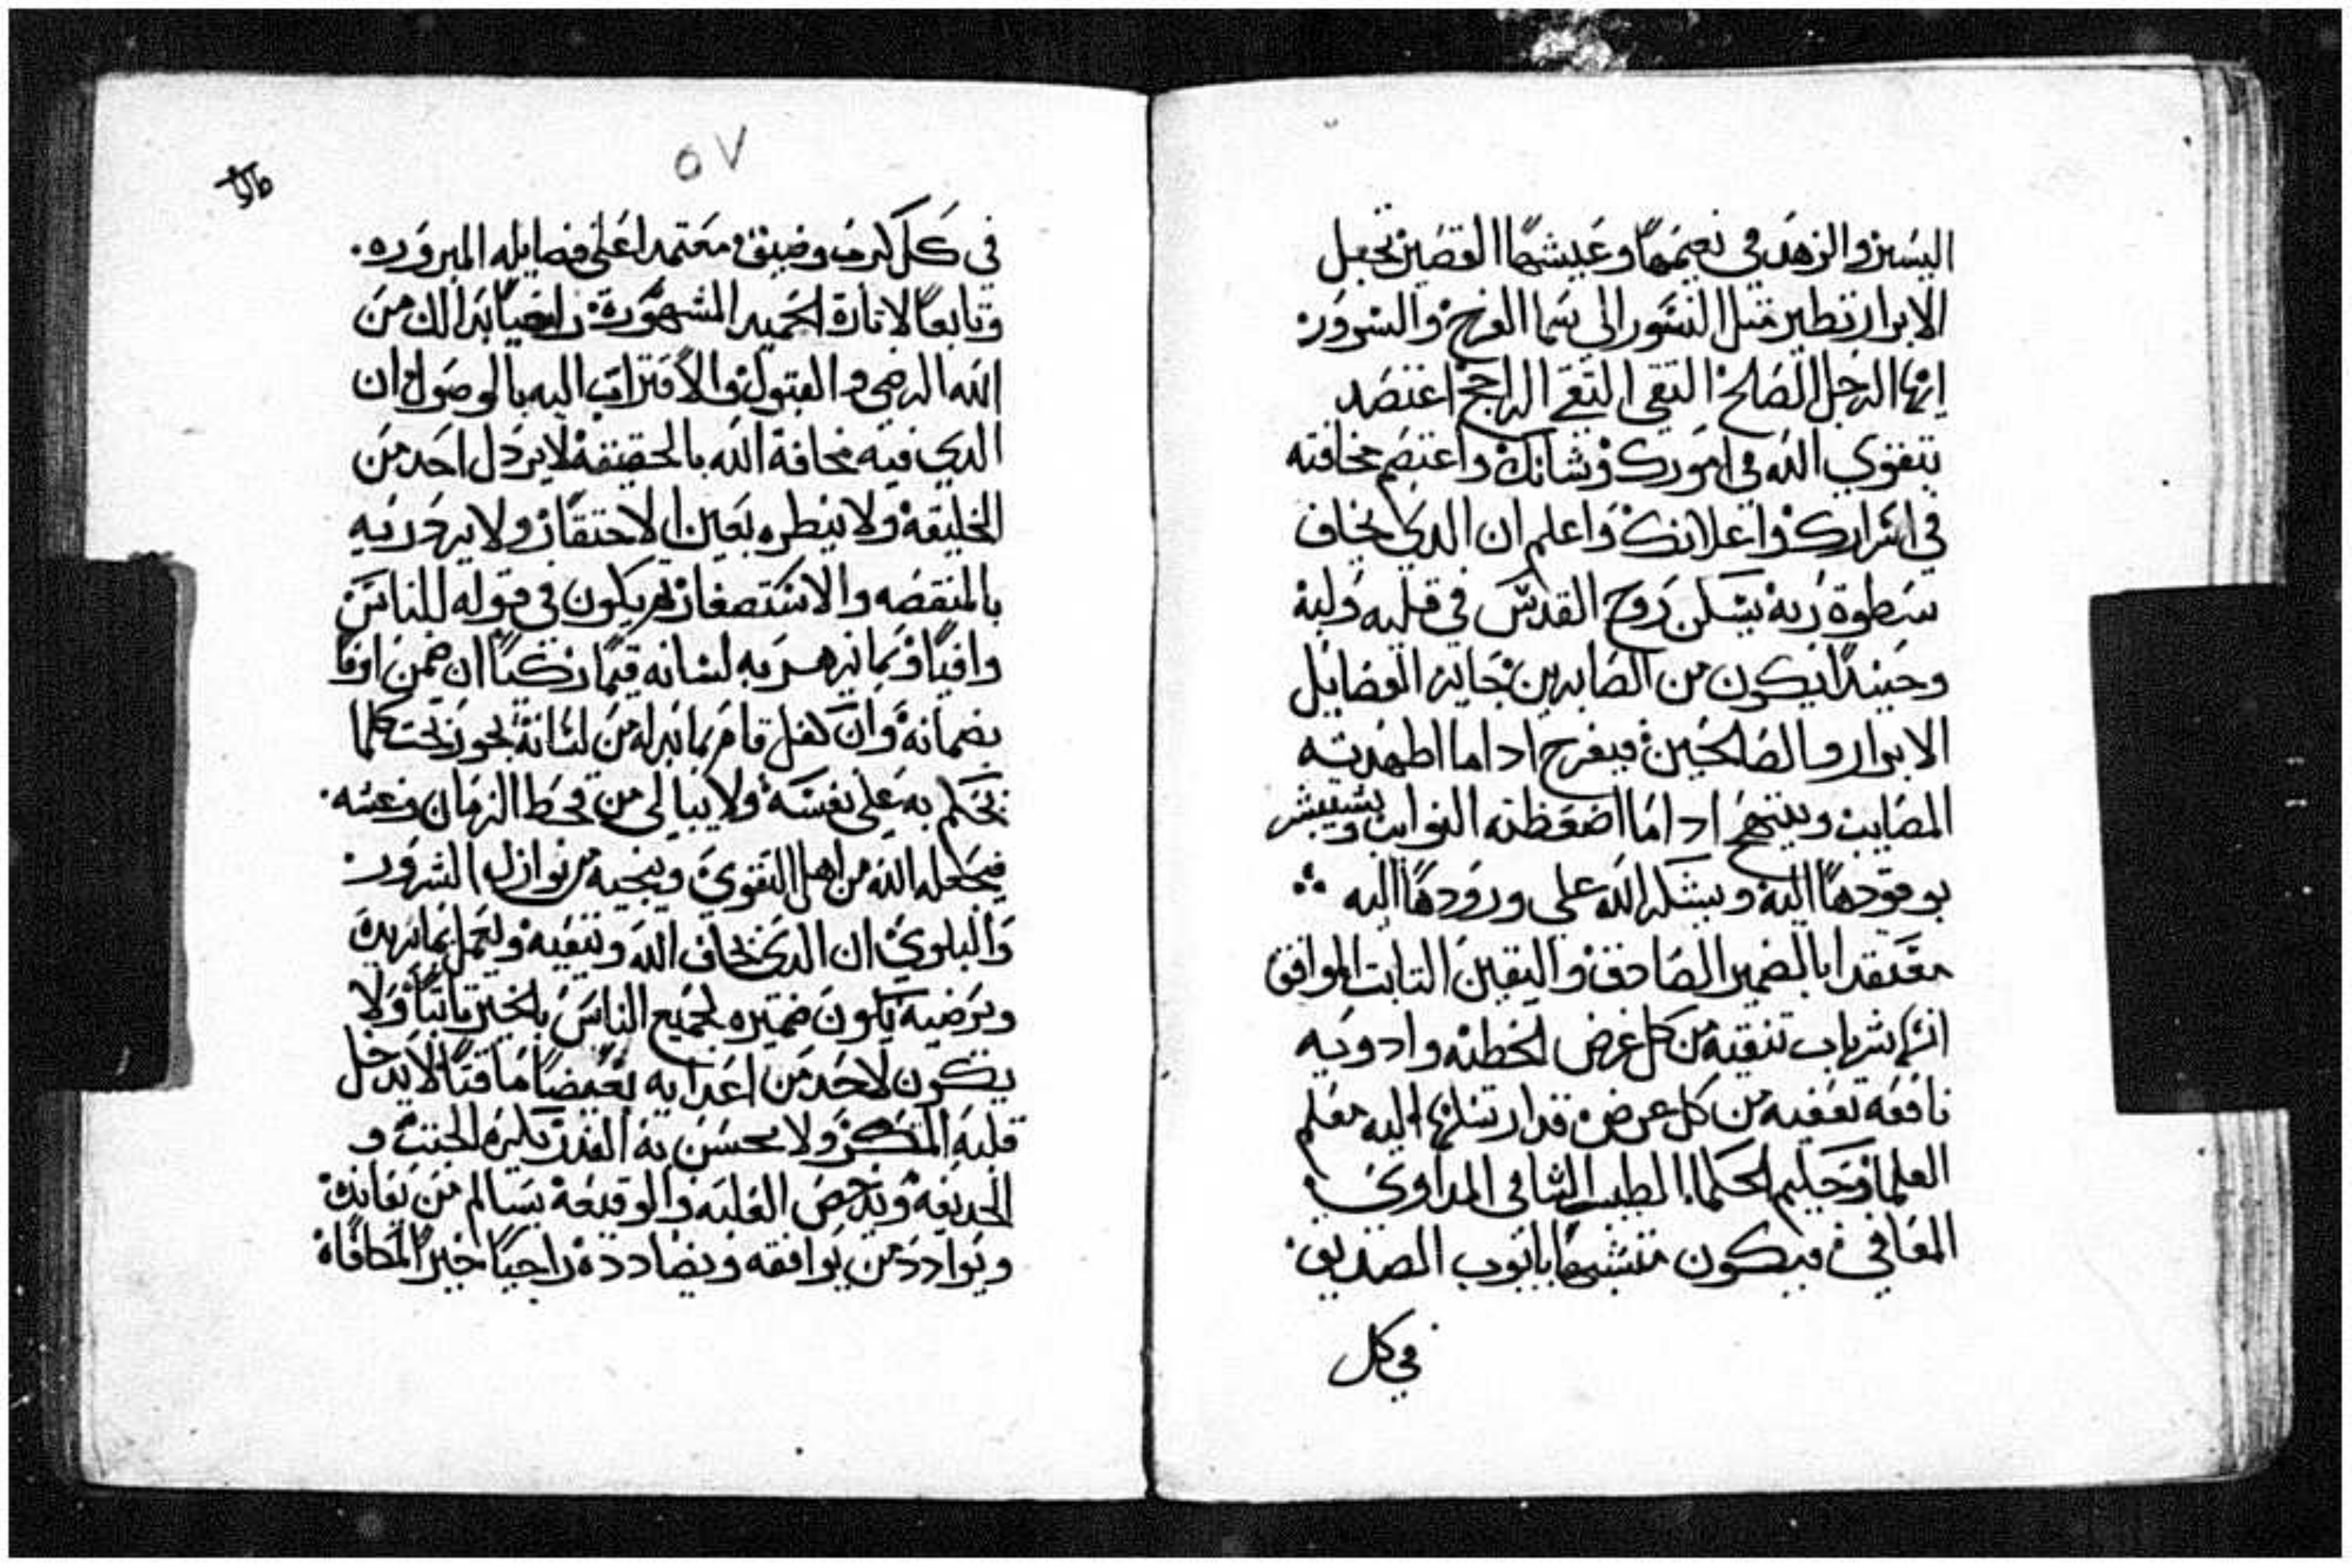 اليسير والزهد في نعيمها وعيشها القصير تجعل
الابرار تطير مثل النسور الى سما الفرح والسرور
ايها الرجل الصالح التقي النقي الراجح اعتضد
بتقوي الله في امورك وشانك واعتصم بمخافته
في اسرارك واعلانك واعلم ان الدي يخاف
سطوة ربه يسكن روح القدس في قلبه ولبه
وحينيدا يكون من الصابرين حايز الفضايل
الابرار والصالحين فيفرح ادا ما اطهدته
المصايب ويبتهج ادا ما اضغطته النوايب ويستبشر
بوفودها اليه ويشكر الله على ورودها اليه
معتقدا بالضمير الصادق واليقين التابت الموافق
انها شربات تنقيه من كل غرض لخطته وادويه
نافعه تعفيه من كل عرض قد ارسلها اليه معلم
العلما وحكيم الحكما الطبيب الشافي المداوي
المعافي فيكون متشبها بايوب الصديق
في كل
٥٧
في كل كرب وضيق معتمدا على فضايله المبروره
وتابعا لاتارة الحميد المشهورة راضيا بدالك من
الله الرضي و القبول والاقتراب اليه بالوصول ان
الدي فيه مخافة الله بالحقيقة لا يردل احد من
الخليقة ولا ينظره بعين الاحتقار ولا يزدريه
بالمنقصه والاستصغار يكون في قوله للناس
وافيا وبما به لسانه قيما زكيا ان ضمن اوفا
بضمانه وان كفل قام بما من لسانه يجوز تحت كلما
يحكم به على نفسه ولا يبالي من قحط الزمان وعسه
فيجعله الله من اهل التقوي وينجيه من نوازل الشرور
والبلوي ان الدي يخاف الله ويتقيه ويعمل بما يريده
ويرضيه يكون ضميره لجميع الناس بالخير تابتا ولا
يكون لاحد من اعدايه بغيضا ماقتا لا يدخل
قلبه المكر ولا يحسن به الغدر يكره الخبث و
الخديعه ويدحض الغلبه والوقيعه يسالم من
ويوادد من يوافقه ويضادده راجيا خير المكافاه